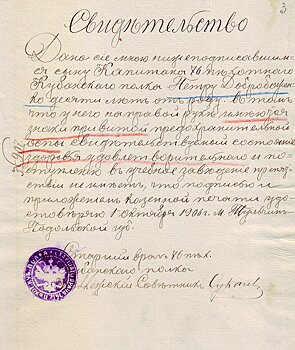 3
Свидѣтельство
Дано сіе мною нижеподписавшим-
ся сыну Капитана 76 пѣхотнаго
Кубанскаго полка Петру Доброволь
десяти лѣтъ отъ роду въ томъ
что у него на правой рукѣ имѣются
знаки привитой предохранительной
оспы свидѣтельствуемый состоянія
здоровья удовлетворительнаго и по-
ступленію въ учебное заведеніе препят-
ствій не имѣетъ, что подписью и
приложеніемъ казенной печати удо-
стовѣряю 1 Октября 1906 г. м.
Подольской губ.
Старшій врачъ 76 пѣх.
Кубанскаго полка
Совѣтникъ